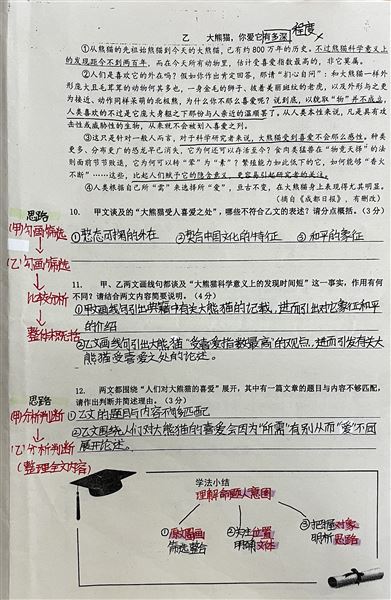 程度
乙 大熊猫，你爱它有多深
①从熊猫的先祖始熊猫到今天的大熊猫，已有约800万年的历史。不过熊猫科学意义上
的发现距今不到两百年，而在今天所有动物里，估计受喜爱指数最高的，非它莫属。
②人们是喜欢它的外在吗？假如你作出肯定回答，那请“扪心自问”：和大熊猫一样外
形庞大且毛茸茸的动物何其多也，一身金毛的狮子、披着美丽斑纹的老虎，以及外形与之更
为接近、动作同样呆萌的北极熊，为什么你不那么喜爱呢？说到底，以貌取“物”并不成立，
人类喜欢的不过是它庞大身躯之下那份与人亲近的温顺罢了。从人类本性来说，凡是具有攻
击性或威胁性的生物，从来就不会被划入喜爱之列。
③这只是针对一般人而言，对于科学研究者来说，大熊猫受到喜爱不会那么感性。种类
更多、分布更广的恐龙早已消失，它为何还可以存活至今？食肉类猛兽在“物竞天择”的法
则面前节节败退，它为何可以转“荤”为“素”？繁殖能力如此低下的它，如何能够“香火
不断”……这些，比起人们赋予它的隐含意义，更容易引起研究者的关注。
④人类根据自己所“需”来选择所“爱”，亘古不变，在大熊猫身上表现得尤其明显。
（摘自《成都日报》，有删改）
10. 甲文谈及的“大熊猫受人喜爱之处”，哪些不符合乙文的表述？请分点概括。（3分）
①憨态可掬的外在 ②契合中国文化的特征 ③和平的象征
思路
(甲)勾画筛选
(乙)勾画筛选
比较分析
整体概括
11. 甲、乙两文画线句都谈及“大熊猫科学意义上的发现时间短”这一事实，作用有何
不同？请结合两文内容简要说明。（4分）
①甲文画线句引出典籍中有关大熊猫的记载，进而引出对它象征和平
的介绍
②乙文画线句引出大熊猫“受喜爱指数最高”的观点，进而引发有关大
熊猫受喜爱之处的论述。
12. 两文都围绕“人们对大熊猫的喜爱”展开，其中有一篇文章的题目与内容不够匹配，
请作出判断并简述理由。（3分）
①乙文的题目与内容不够匹配
②乙文围绕人们对大熊猫的喜爱会因为“所需”有别从而“爱”不同
展开论述。
思路
(甲)分析判断
(乙)分析判断
(整理全文内容)
学法小结
理解命题人意图
①原文圈画
筛选整合
②关注位置
明确文体
③把握对象
明晰思路